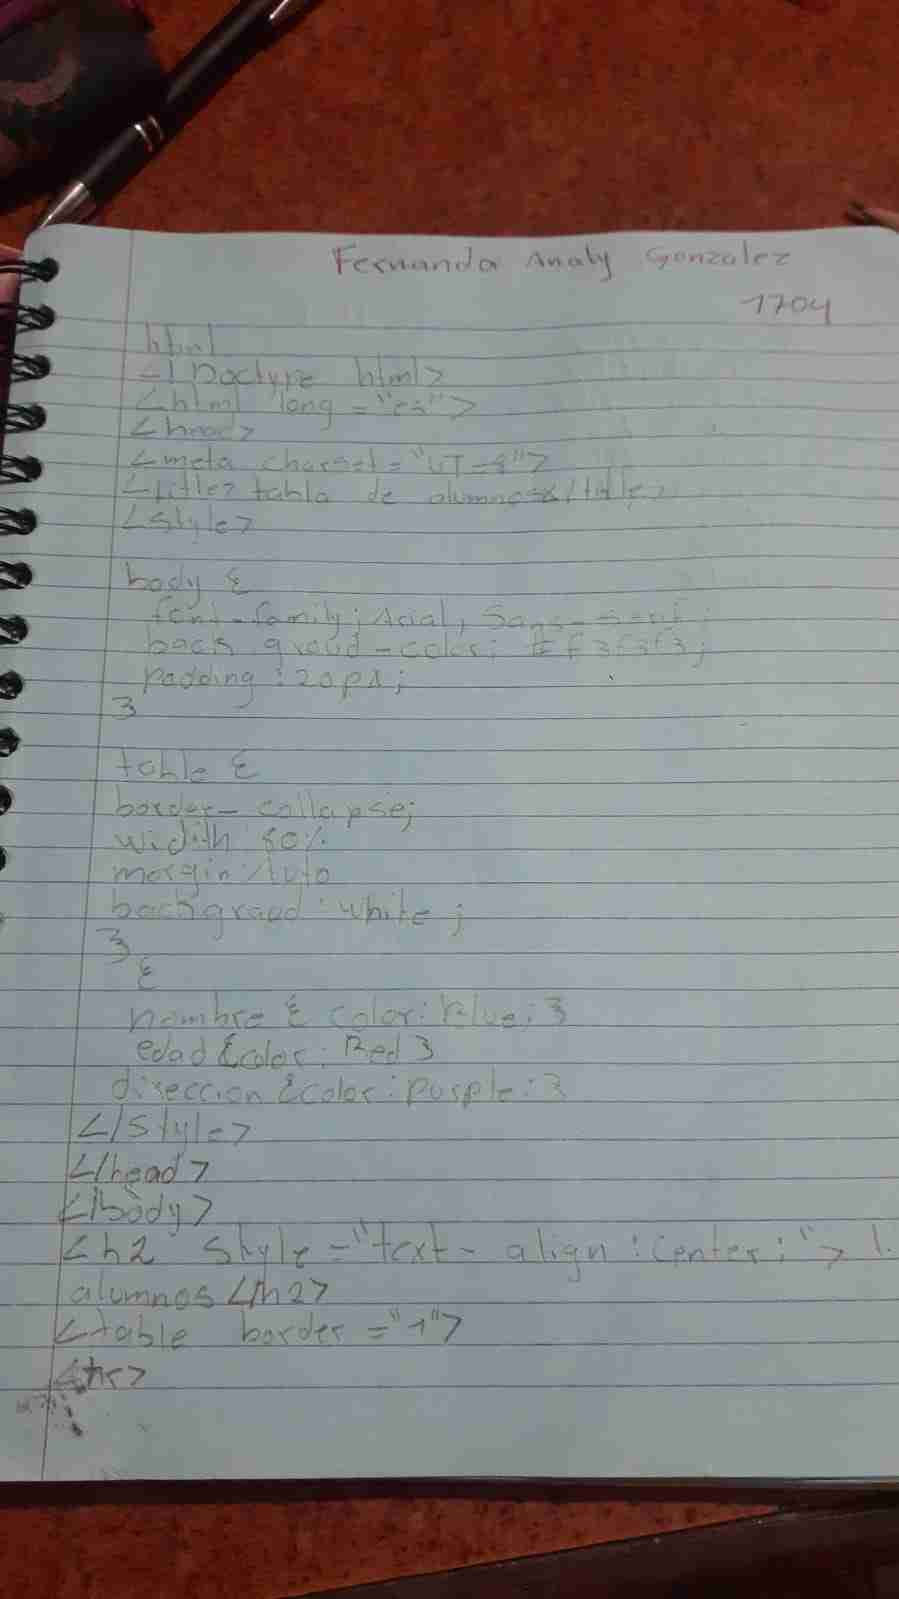 Fernanda Analy Gonzalez
1704
html
<! Doctype html>
<html long ="es">
<head>
<meta charset="UT-8">
<title> tabla de alumnos</title>
<style>
body {
font-family; Arial, Sans-serif;
back groud-color; #f3f3f3;
padding: 20px;
}
table {
border- collapse;
widith 80%
margin: Auto
backgraod: white;
}
{
nombre { color: Blue; }
edad {color: Red }
direccion {color: purple; }
</style>
</head>
</body>
<h2 style="text- align: center;"> l.
alumnos </h2>
<table border ="1">
<hr>